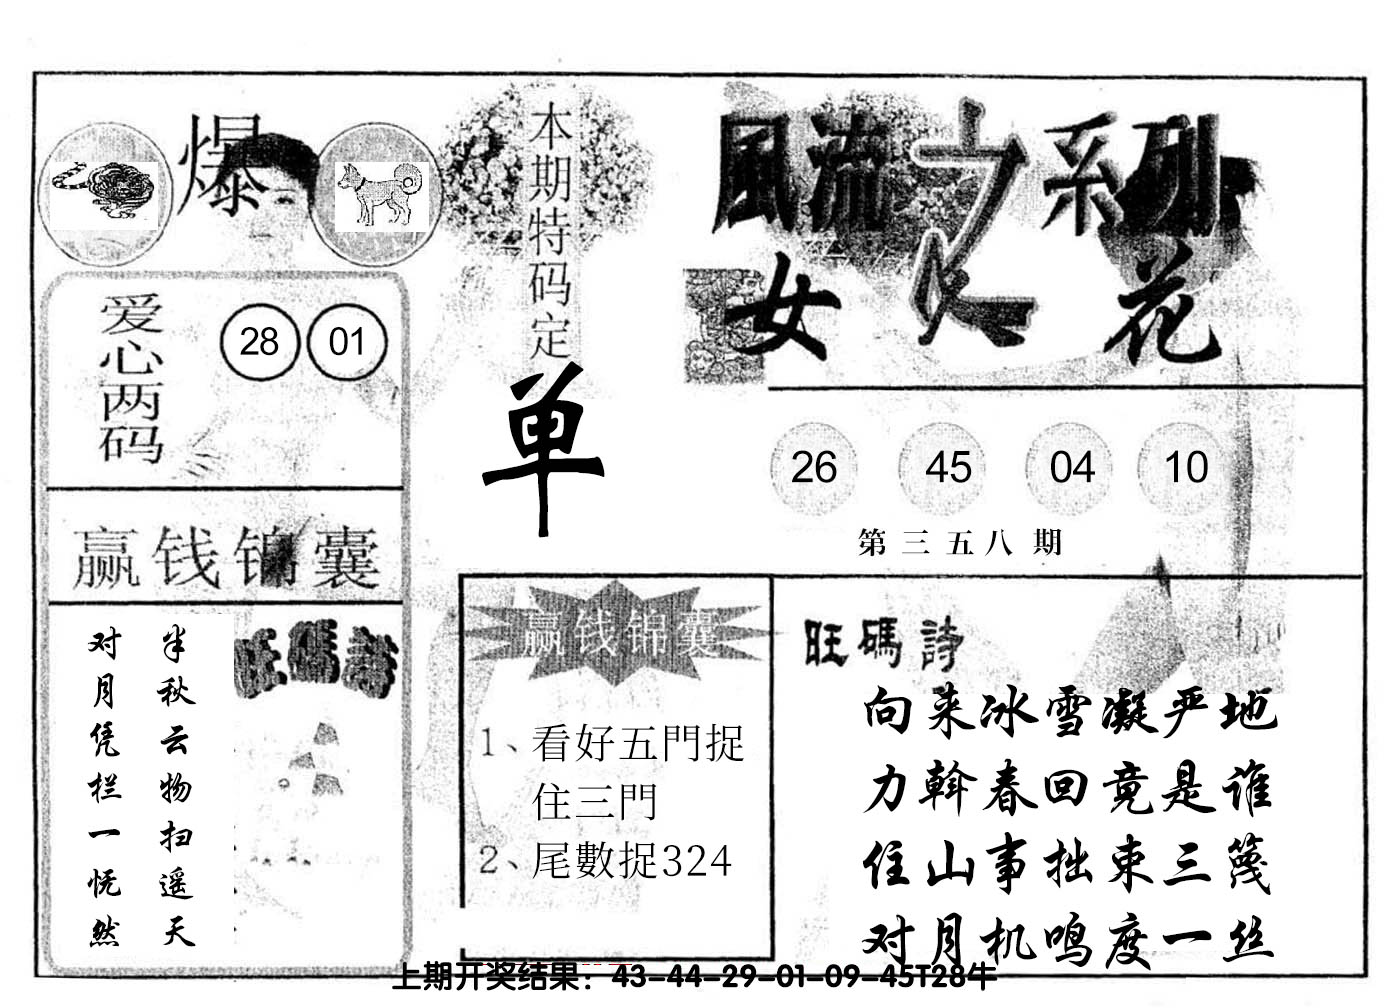 爆
爱心两码
28 01
赢钱锦囊
半秋云物扫遥天
对月凭栏一恍然
旺碼詩
本期特码定
单
風流之系列
女人花
26 45 04 10
第三五八期
赢钱锦囊
1、看好五門捉
住三門
2、尾數捉324
旺碼詩
向来冰雪凝严地
力斡春回竟是谁
住山事拙束三篾
对月机鸣度一丝
上期开奖结果：43-44-29-01-09-45T28牛